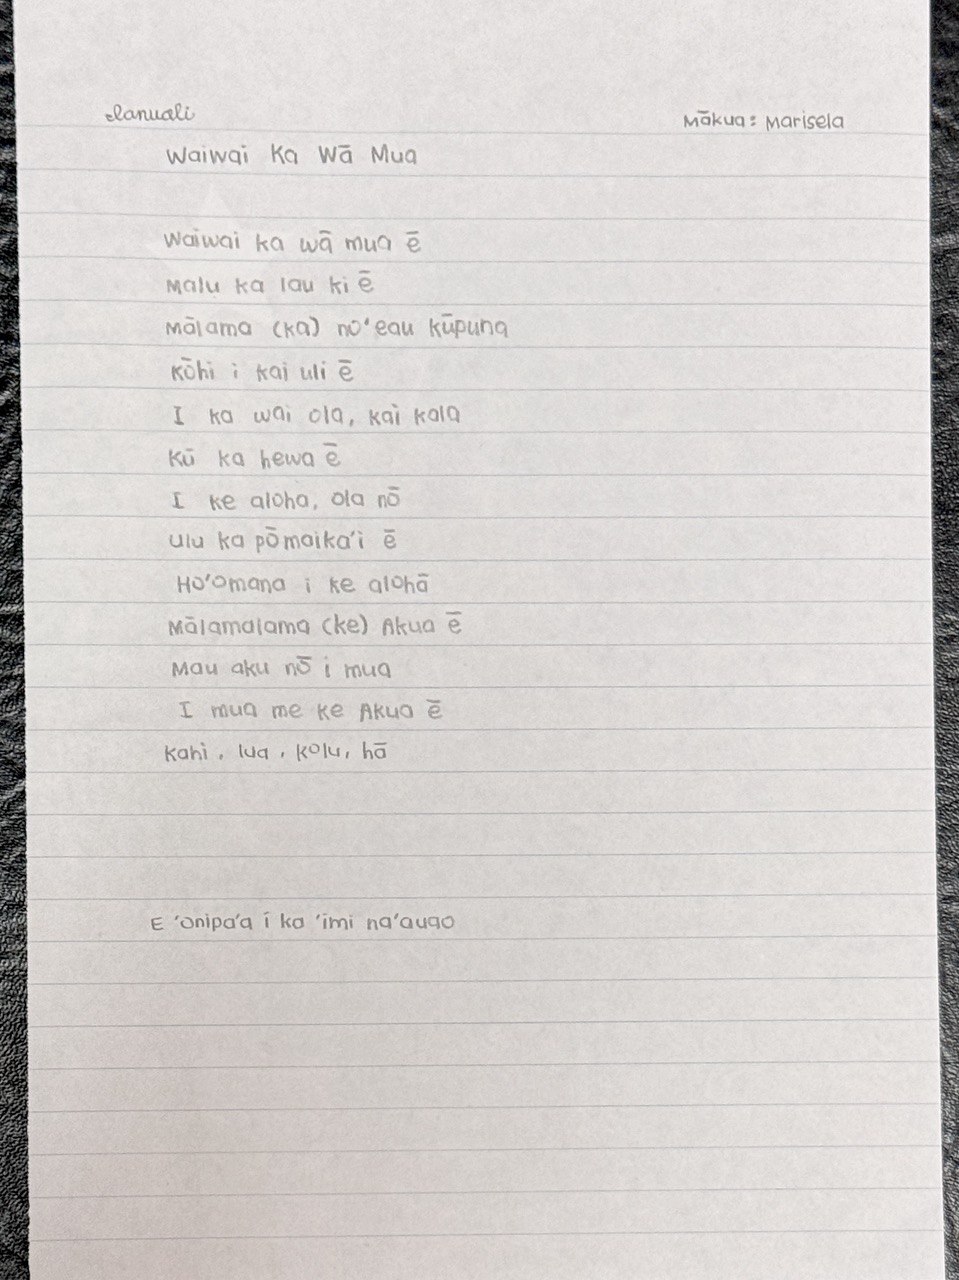 Ianuali
Mākua: Marisela
Waiwai Ka Wā Mua
Waiwai ka wā mua ē
Malu ka lau ki ē
Mālama (ka) no'eau kūpuna
Kōhi i kai uli ē
I ka wai ola, kai kala
Kū ka hewa ē
I ke aloha, ola nō
Ulu ka pōmaika'i ē
Ho'omana i ke alohā
Mālamalama (ke) Akua ē
Mau aku nō i mua
I mua me ke Akua ē
Kahi, lua, kolu, hā
E 'onipa'a i ka 'imi na'auao